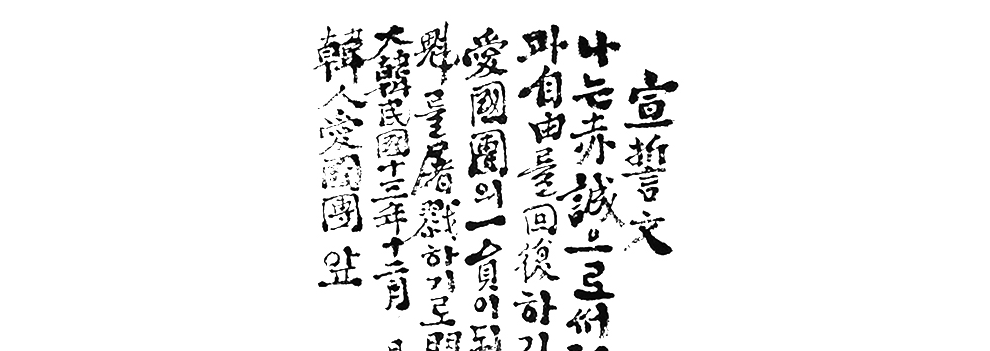 宣誓文
나는赤誠으로써
과自由를回復하기
愛國團의一員이되
魁를屠戮하기로
大韓民國十三年十二月
韓人愛國團 앞